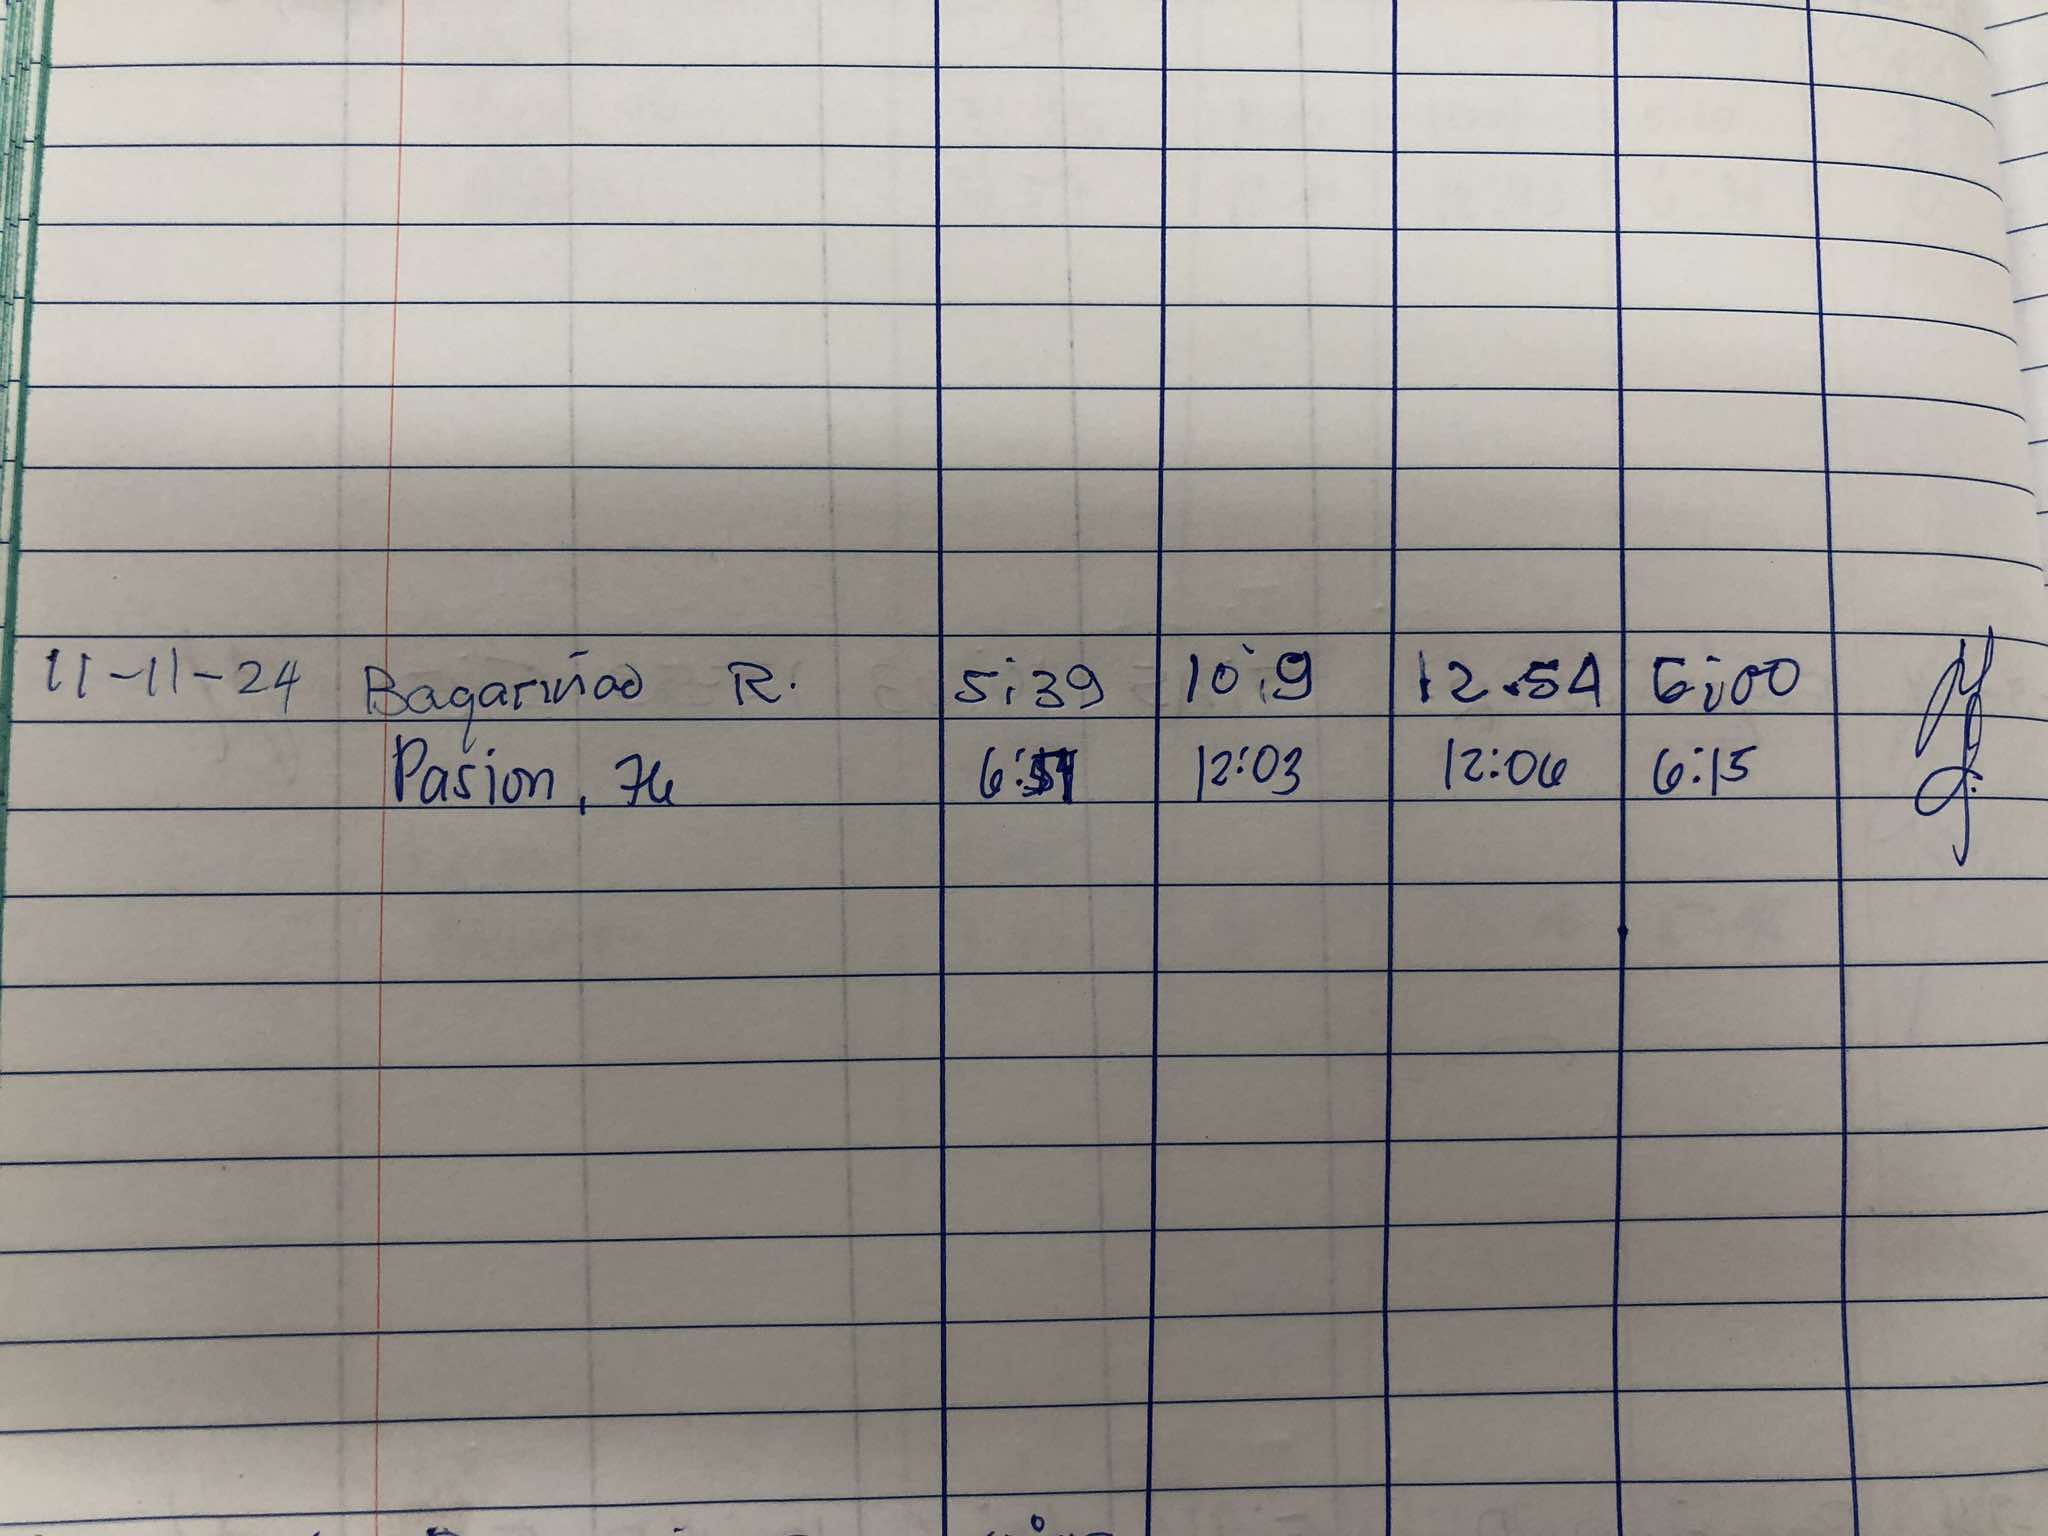 11-11-24 Bagariñao R. 5:39 10:9 12.54 6:00
Pasion, 12:03 12:06 6:15